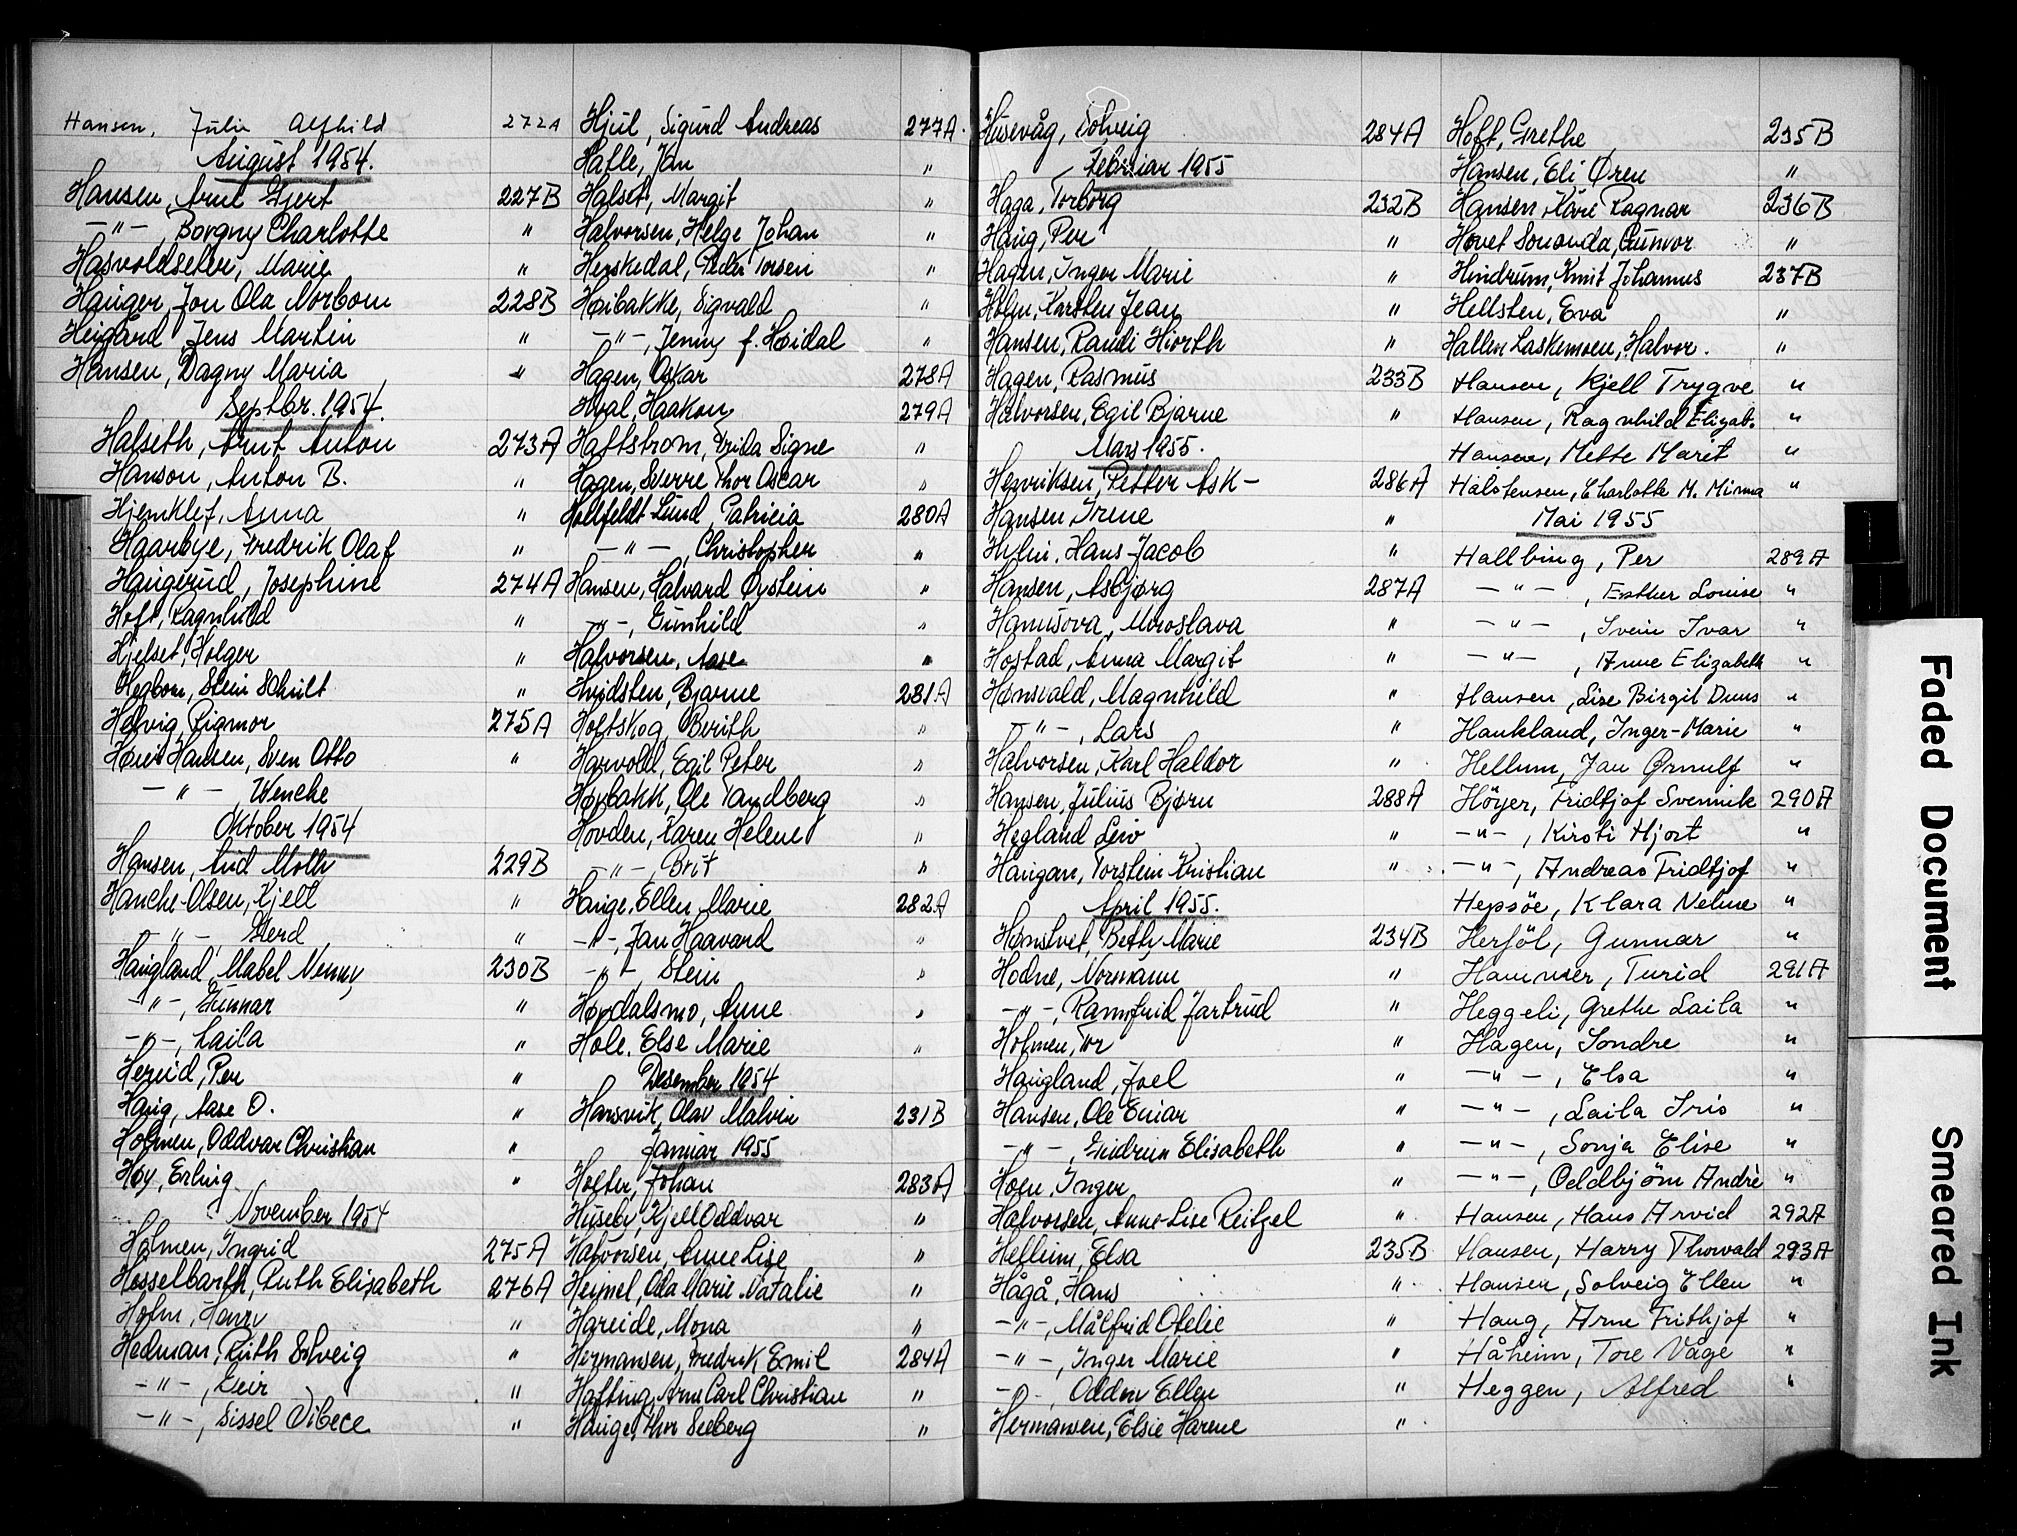 Hansen, Julie Alfhild 272A
August 1954.
Hansen, Arne Gjert 227B
—"—, Borgny Charlotte "
Hasvoldseter, Marie "
Hauger, Jon Ola Norbom 228B
Heigård, Jens Martin "
Hansen, Dagny Maria "
Septbr. 1954.
Halseth, Arnt Anton 273A
Hanson, Anton B. "
Hjemklef, Anna "
Haarbye, Fredrik Olaf "
Haugerud, Josephine 274A
Hoft, Ragnhild "
Hjelset, Holger "
Hegbom, Stein Schult "
Helvig, Rigmor 275A
Høier Hansen, Sven Otto "
—"— Wenche
Oktober 1954
Hansen, Aud Molly 229B
Hanche-Olsen, Kjell "
—"— Gerd "
Haugland, Mabel Nenny 230B
—"—, Gunnar "
—"—, Laila "
Hereid, Per "
Haug, Aase O. "
Holmen, Oddvar Christian "
Høy, Erling "
November 1954
Holmen, Ingrid 275A
Hesselbarth, Ruth Elisabeth 276A
Holm, Harry "
Hedman, Ruth Solveig "
—"—, Geir "
—"—, Sissel Vibece "
Hjul, Sigurd Andreas 277A.
Hafle, Jan "
Halset, Margit "
Halvorsen, Helge Johan "
Herskedal, Peder Torsen "
Høibakke, Sigvald "
—"—, Jenny f. Høidal "
Hagen, Oskar 278A
Hval, Haakon 279A
Haftstrom, Frida Signe "
Hagen, Sverre Thor Oscar "
Hollfeldt-Lund, Patricia 280A
—"—, Christopher "
Hansen, Halvard Øystein "
—"—, Gunhild "
Halvorsen, Aase "
Hvidsten, Bjarne 281A
Holtskog, Berith "
Harvold, Egil Peter "
Hovbakk, Ole Tandberg "
Hovden, Karen Helene "
—"—, Brit "
Hauge, Ellen Marie 282A
—"—, Jan Haavard "
—"— Stein "
Høydalsmo, Anne "
Hole, Else Marie "
Desember 1954
Hansvik, Olav Malvin 231B
Januar 1955
Holter, Johan 283A
Huseby, Kjell Oddvar "
Halvorsen, Anne Lise "
Heimel, Oda Marie Natalie "
Hareide, Mona "
Hermansen, Fredrik Emil 284A
Hafting, Arne Carl Christian "
Hauge, Thor Seeberg "
Husevåg, Solveig 284A
Februar 1955
Haga, Torborg 232B
Haug, Per "
Hagen, Inger Marie "
Holm, Karsten Jean "
Hansen, Randi Hiorth "
Hagen, Rasmus 233B
Halvorsen, Egil Bjarne "
Mars 1955.
Henriksen, Petter Ask— 286A
Hansen, Irene "
Hylin, Hans Jacob "
Hansen, Asbjørg 287A
Hanusova, Miroslava "
Hostad, Anna Margit "
Hønsvald, Magnhild "
—"—, Lars "
Halvorsen, Karl Haldor "
Hansen, Julius Bjørn 288A
Hegland Leiv "
Haugan, Torstein Kristian "
April 1955.
Hønstvet, Beth Marie 234B
Hodne, Normann "
—"—, Rannfrid Jartrud "
Holmen, Tor "
Haugland, Joel "
Hansen, Ole Einar "
—"—, Gudrun Elisabeth "
Hoen, Inger "
Halvorsen, Anne-Lise Reitzel "
Hellum, Elsa 235B
Hågå, Hans "
—"—, Målfrid Otelie "
—"—, Inger Marie "
—"—, Oddny Ellen "
Hermansen, Elsie Harene "
Hoft, Grethe 235B
Hansen, Eli Øren "
Hansen, Kåre Ragnar 236B
Hovet Sonanda, Gunvor "
Hindrum, Knut Johannes 237B
Hellsten, Eva "
Hallen Laskemoen, Halvor. "
Hansen, Kjell Trygve "
Hansen, Ragnhild Elizab. "
Hansen, Mette Marit "
Halstensen, Charlotte M. Minna "
Mai 1955
Hallbing, Per 289A
—"—, Esther Louise "
—"—, Svein Ivar "
—"—, Anne Elizabeth "
Hansen, Lise Birgit Duus "
Haukland, Inger-Marie "
Hellum, Jan Ørnulf "
Höyer, Fridtjof Svennik 290A
—"—, Kirsti Hjort "
—"—, Andreas Fridtjof "
Hepsöe, Klara Neline "
Herföl, Gunnar "
Hammer, Turid 291A
Heggeli, Grethe Laila "
Hagen, Sondre "
—"—, Elsa "
—"—, Laila Iris "
—"—, Sonja Elise "
—"—, Oddbjörn Andrè "
Hansen, Hans Arvid 292A
Hansen, Harry Thorvald 293A
Hansen, Solveig Ellen "
Haug, Arne Frithjof "
Håheim, Tore Våge "
Heggen, Alfred "
Faded Document
Smeared Ink